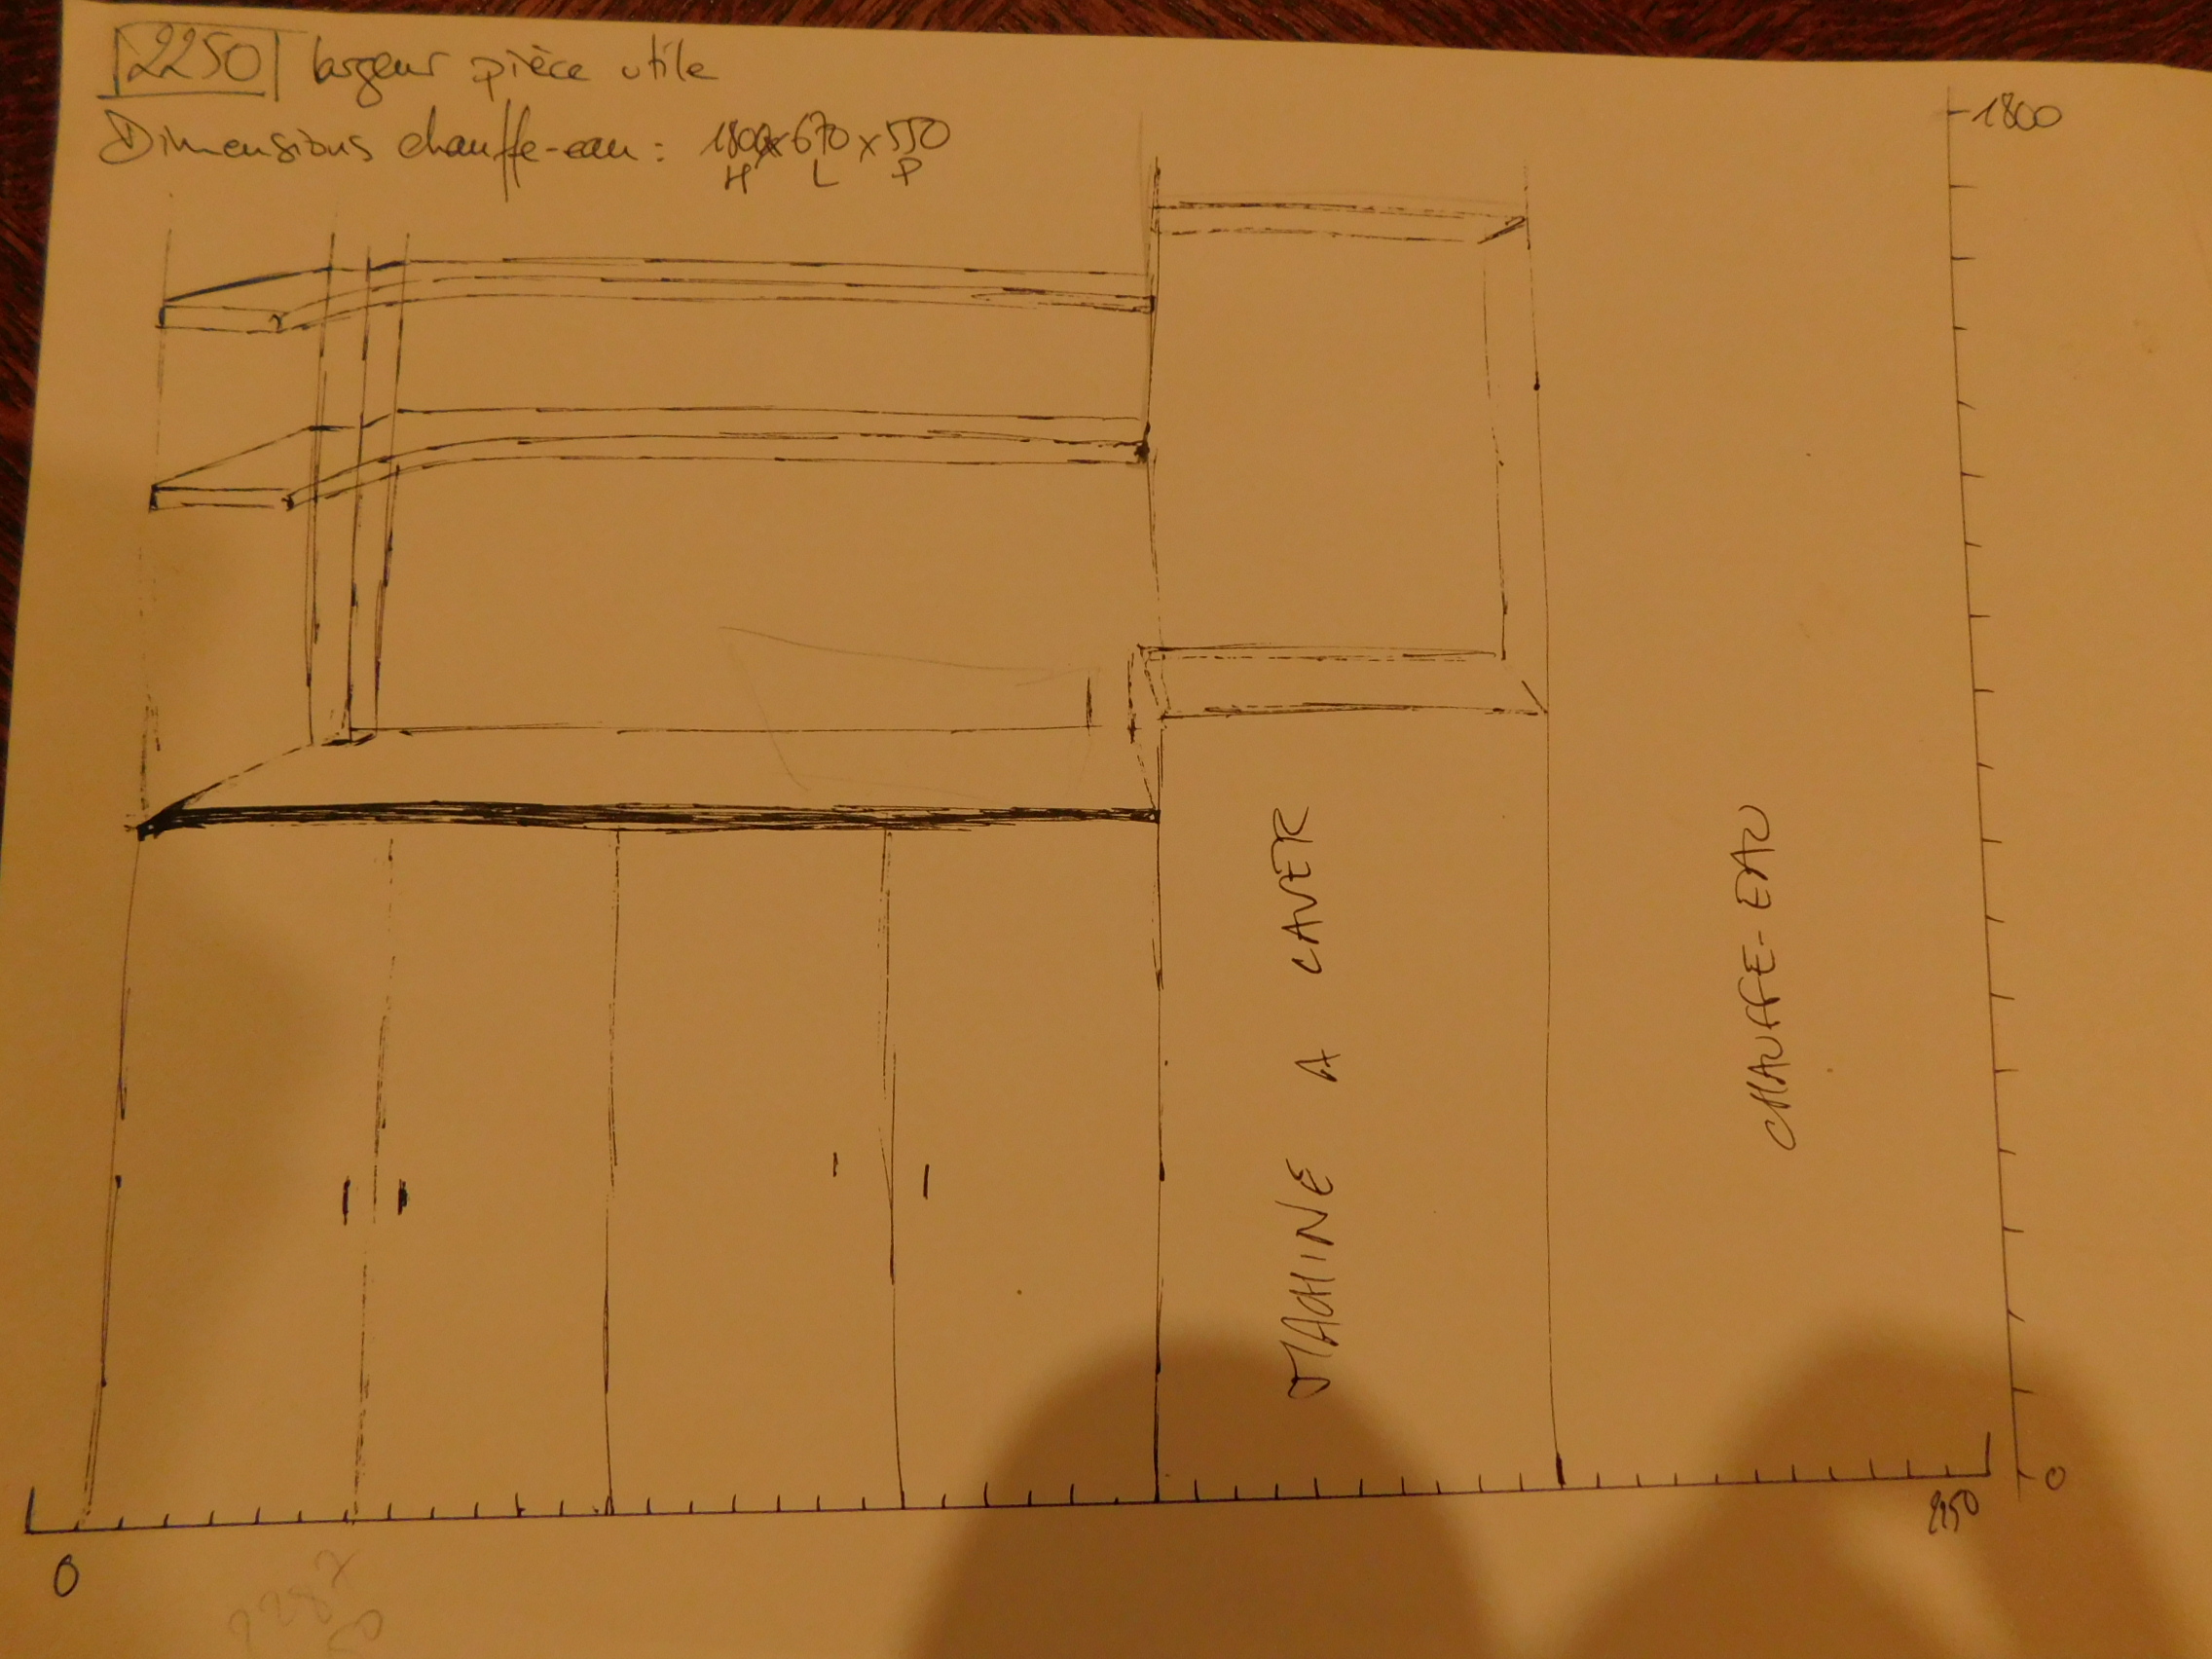 2250 largeur pièce utile
Dimensions chauffe-eau: 1800x670x550
H L P
1800
MACHINE A LAVER
CHAUFFE-EAU
0
2250
0